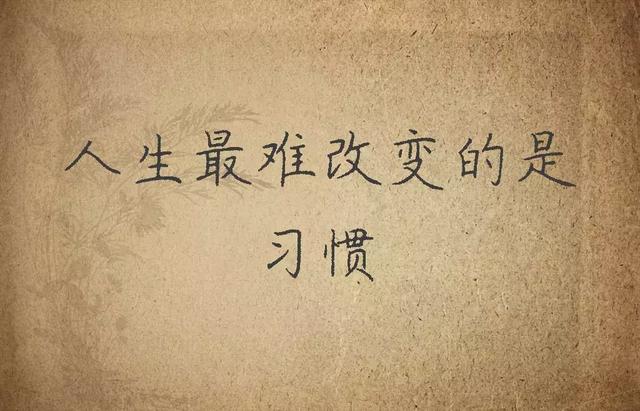 人生最难改变的是
习惯